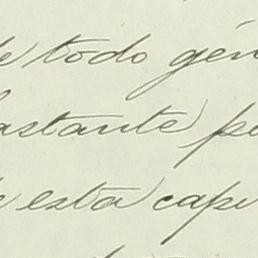 de todo gén
bastante pe
de esta capi